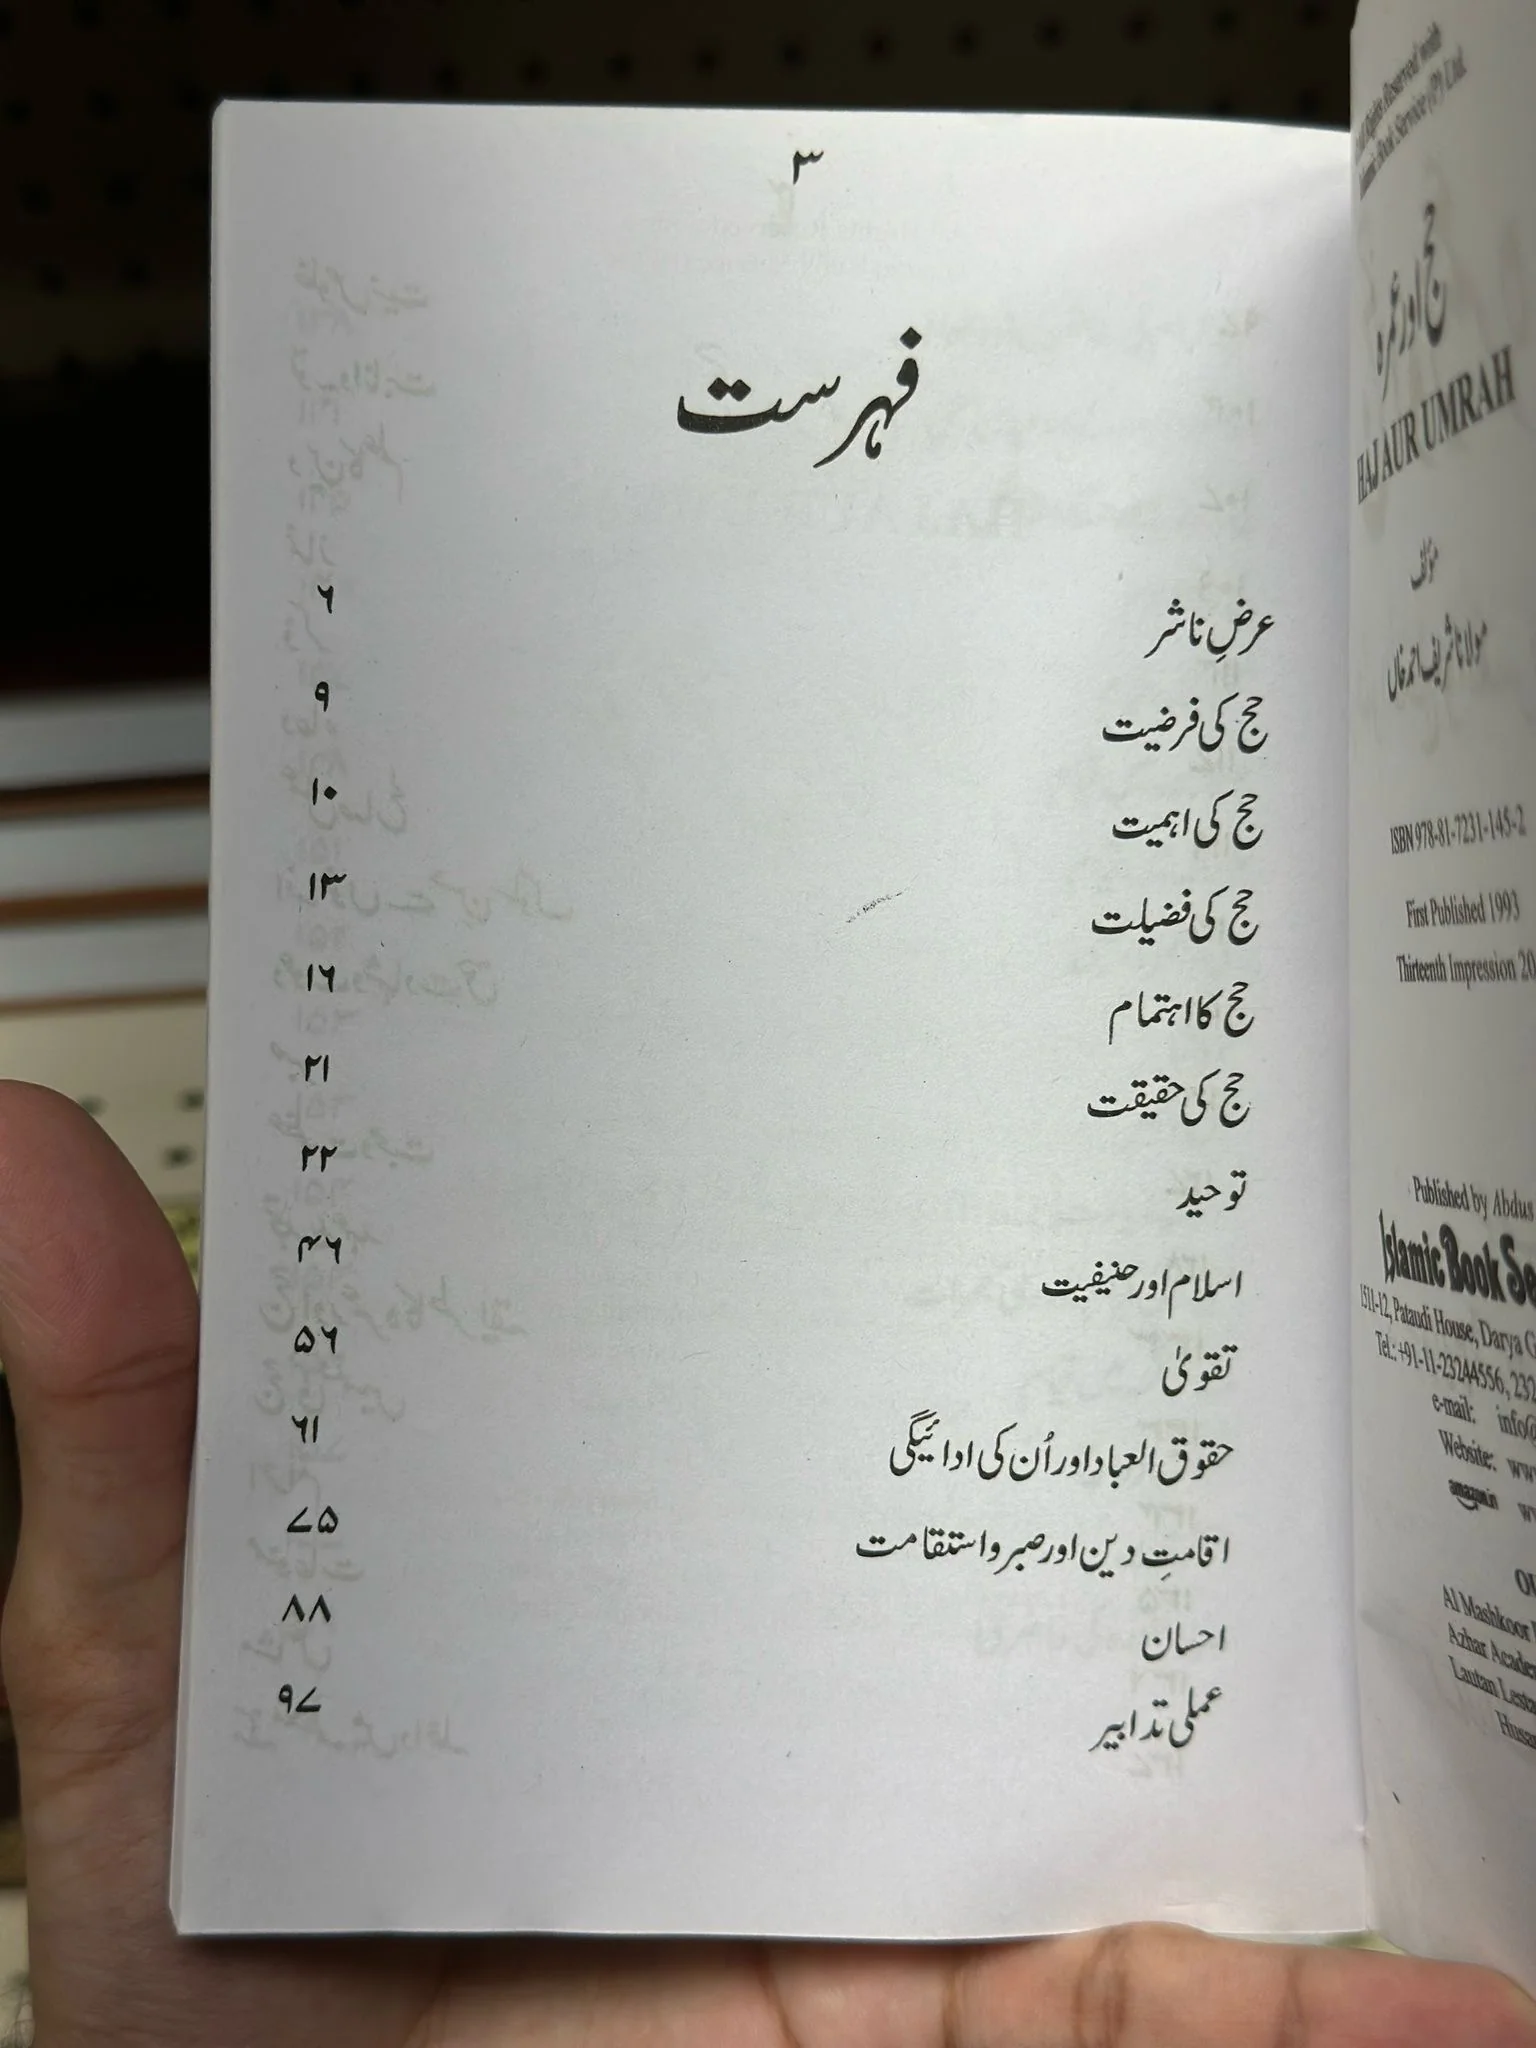 ۳
فہرست
عرضِ ناشر ۶
حج کی فرضیت ۹
حج کی اہمیت ۱۰
حج کی فضیلت ۱۳
حج کا اہتمام ۱۶
حج کی حقیقت ۲۱
توحید ۲۲
اسلام اور حنیفیت ۴۶
تقویٰ ۵۶
حقوق العباد اور اُن کی ادائیگی ۶۱
اقامتِ دین اور صبر و استقامت ۷۵
احسان ۸۸
عملی تدابیر ۹۷
Rights Reserved with
Islamic Book Service (P) Ltd.
حج اور عمرہ
HAJ AUR UMRAH
مؤلف
مولانا شریف احمد خاں
ISBN 978-81-7231-145-2
First Published 1993
Thirteenth Impression 20
Published by Abdus
Islamic Book Se
1511-12, Pataudi House, Darya G
Tel.: +91-11-23244556, 232
e-mail: info@
Website: www
amazon.in
Al Mashkoor
Azhar Acade
Lautan Lesta
Husa